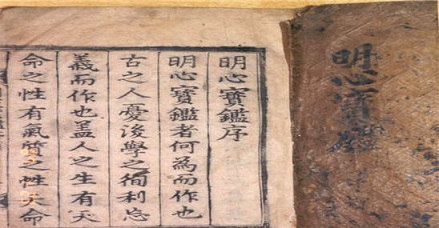 明心寶鑑
明心寶鑑序
明心寶鑑者何為而作也
古之人憂後學之徇利忘
義而作也盖人之生有天
命之性有氣質之性天命